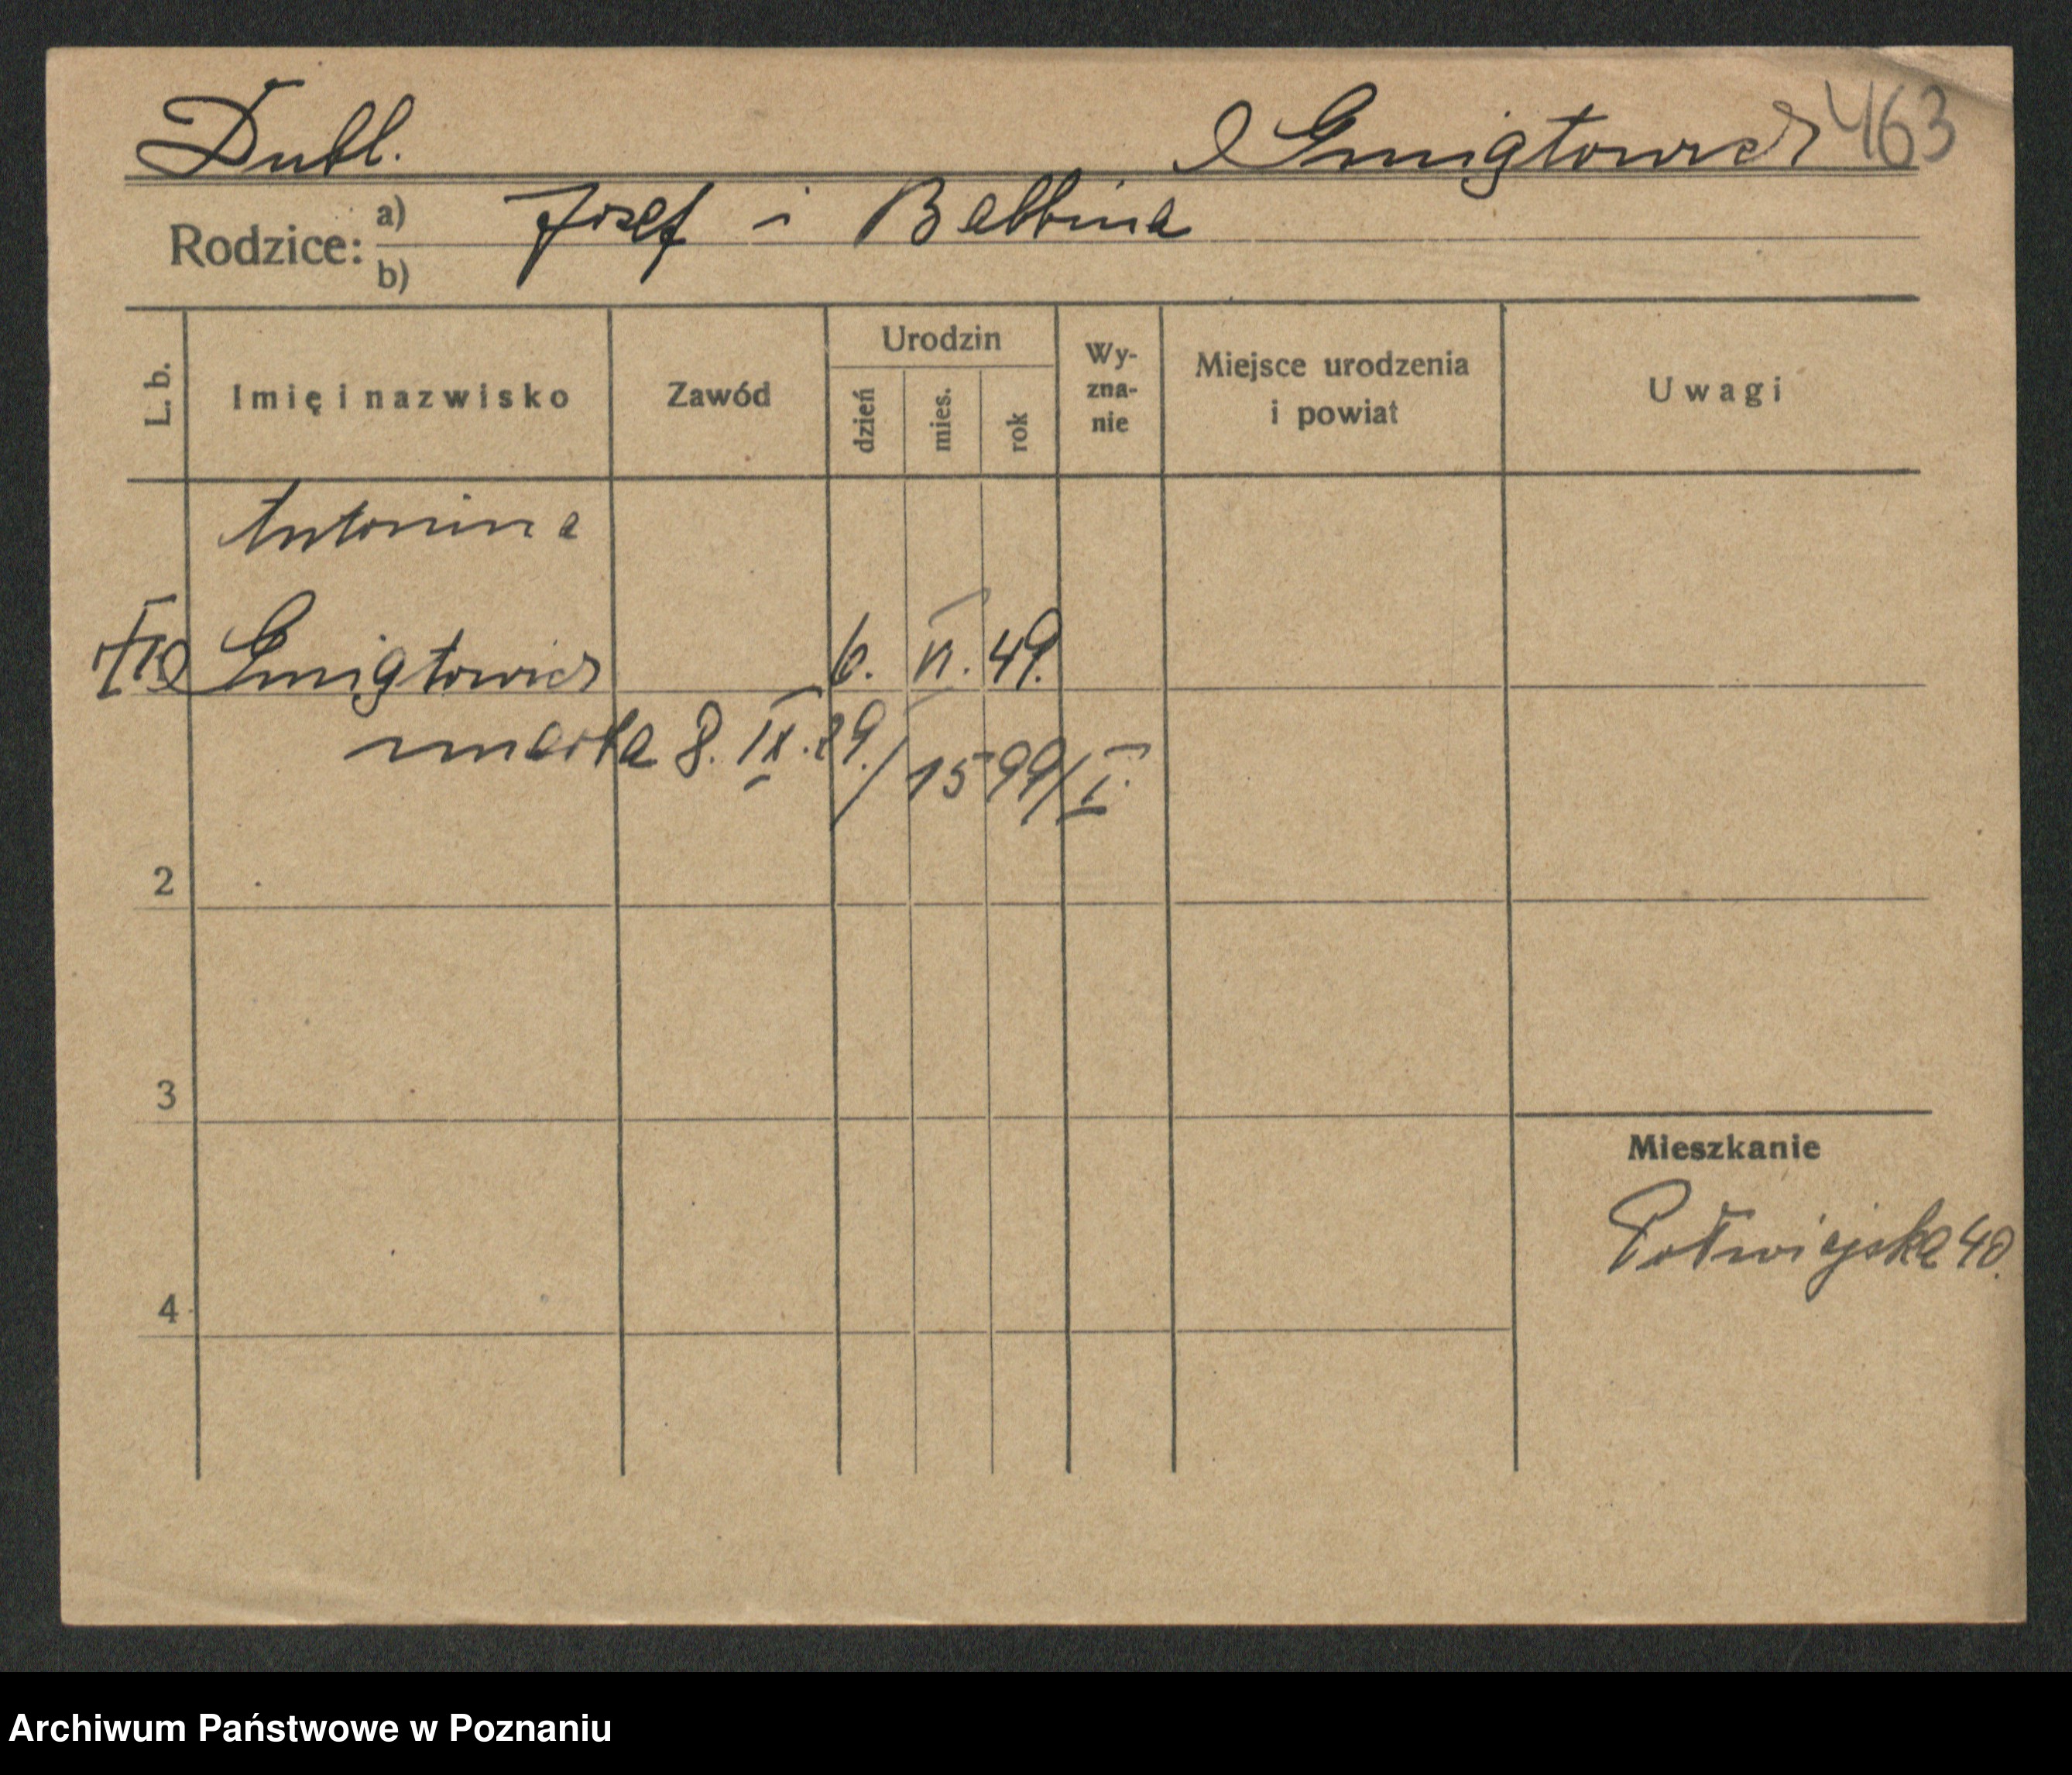 Dubl. Śmigtowicz 463
Rodzice: a) Józef i Balbina
b)
L. b. Imię i nazwisko Zawód Urodzin dzień mies. rok Wy-zna-nie Miejsce urodzenia i powiat Uwagi
Antonina
Śmigtowicz 6. VI. 49.
umarła 8. IX. 29. / 1599/I.
2
3
Mieszkanie
Półwiejska 40.
4
Archiwum Państwowe w Poznaniu